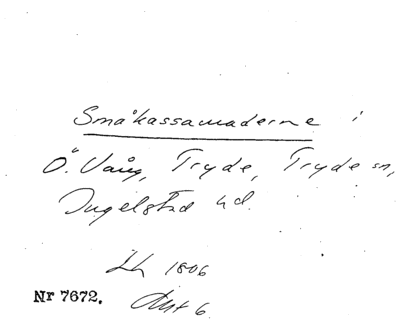 Småkassamaderne i
Ö. Vång, Tryde, Tryde sn,
Ingelstad hd.
Lh 1806
Nr 7672. Akt 6